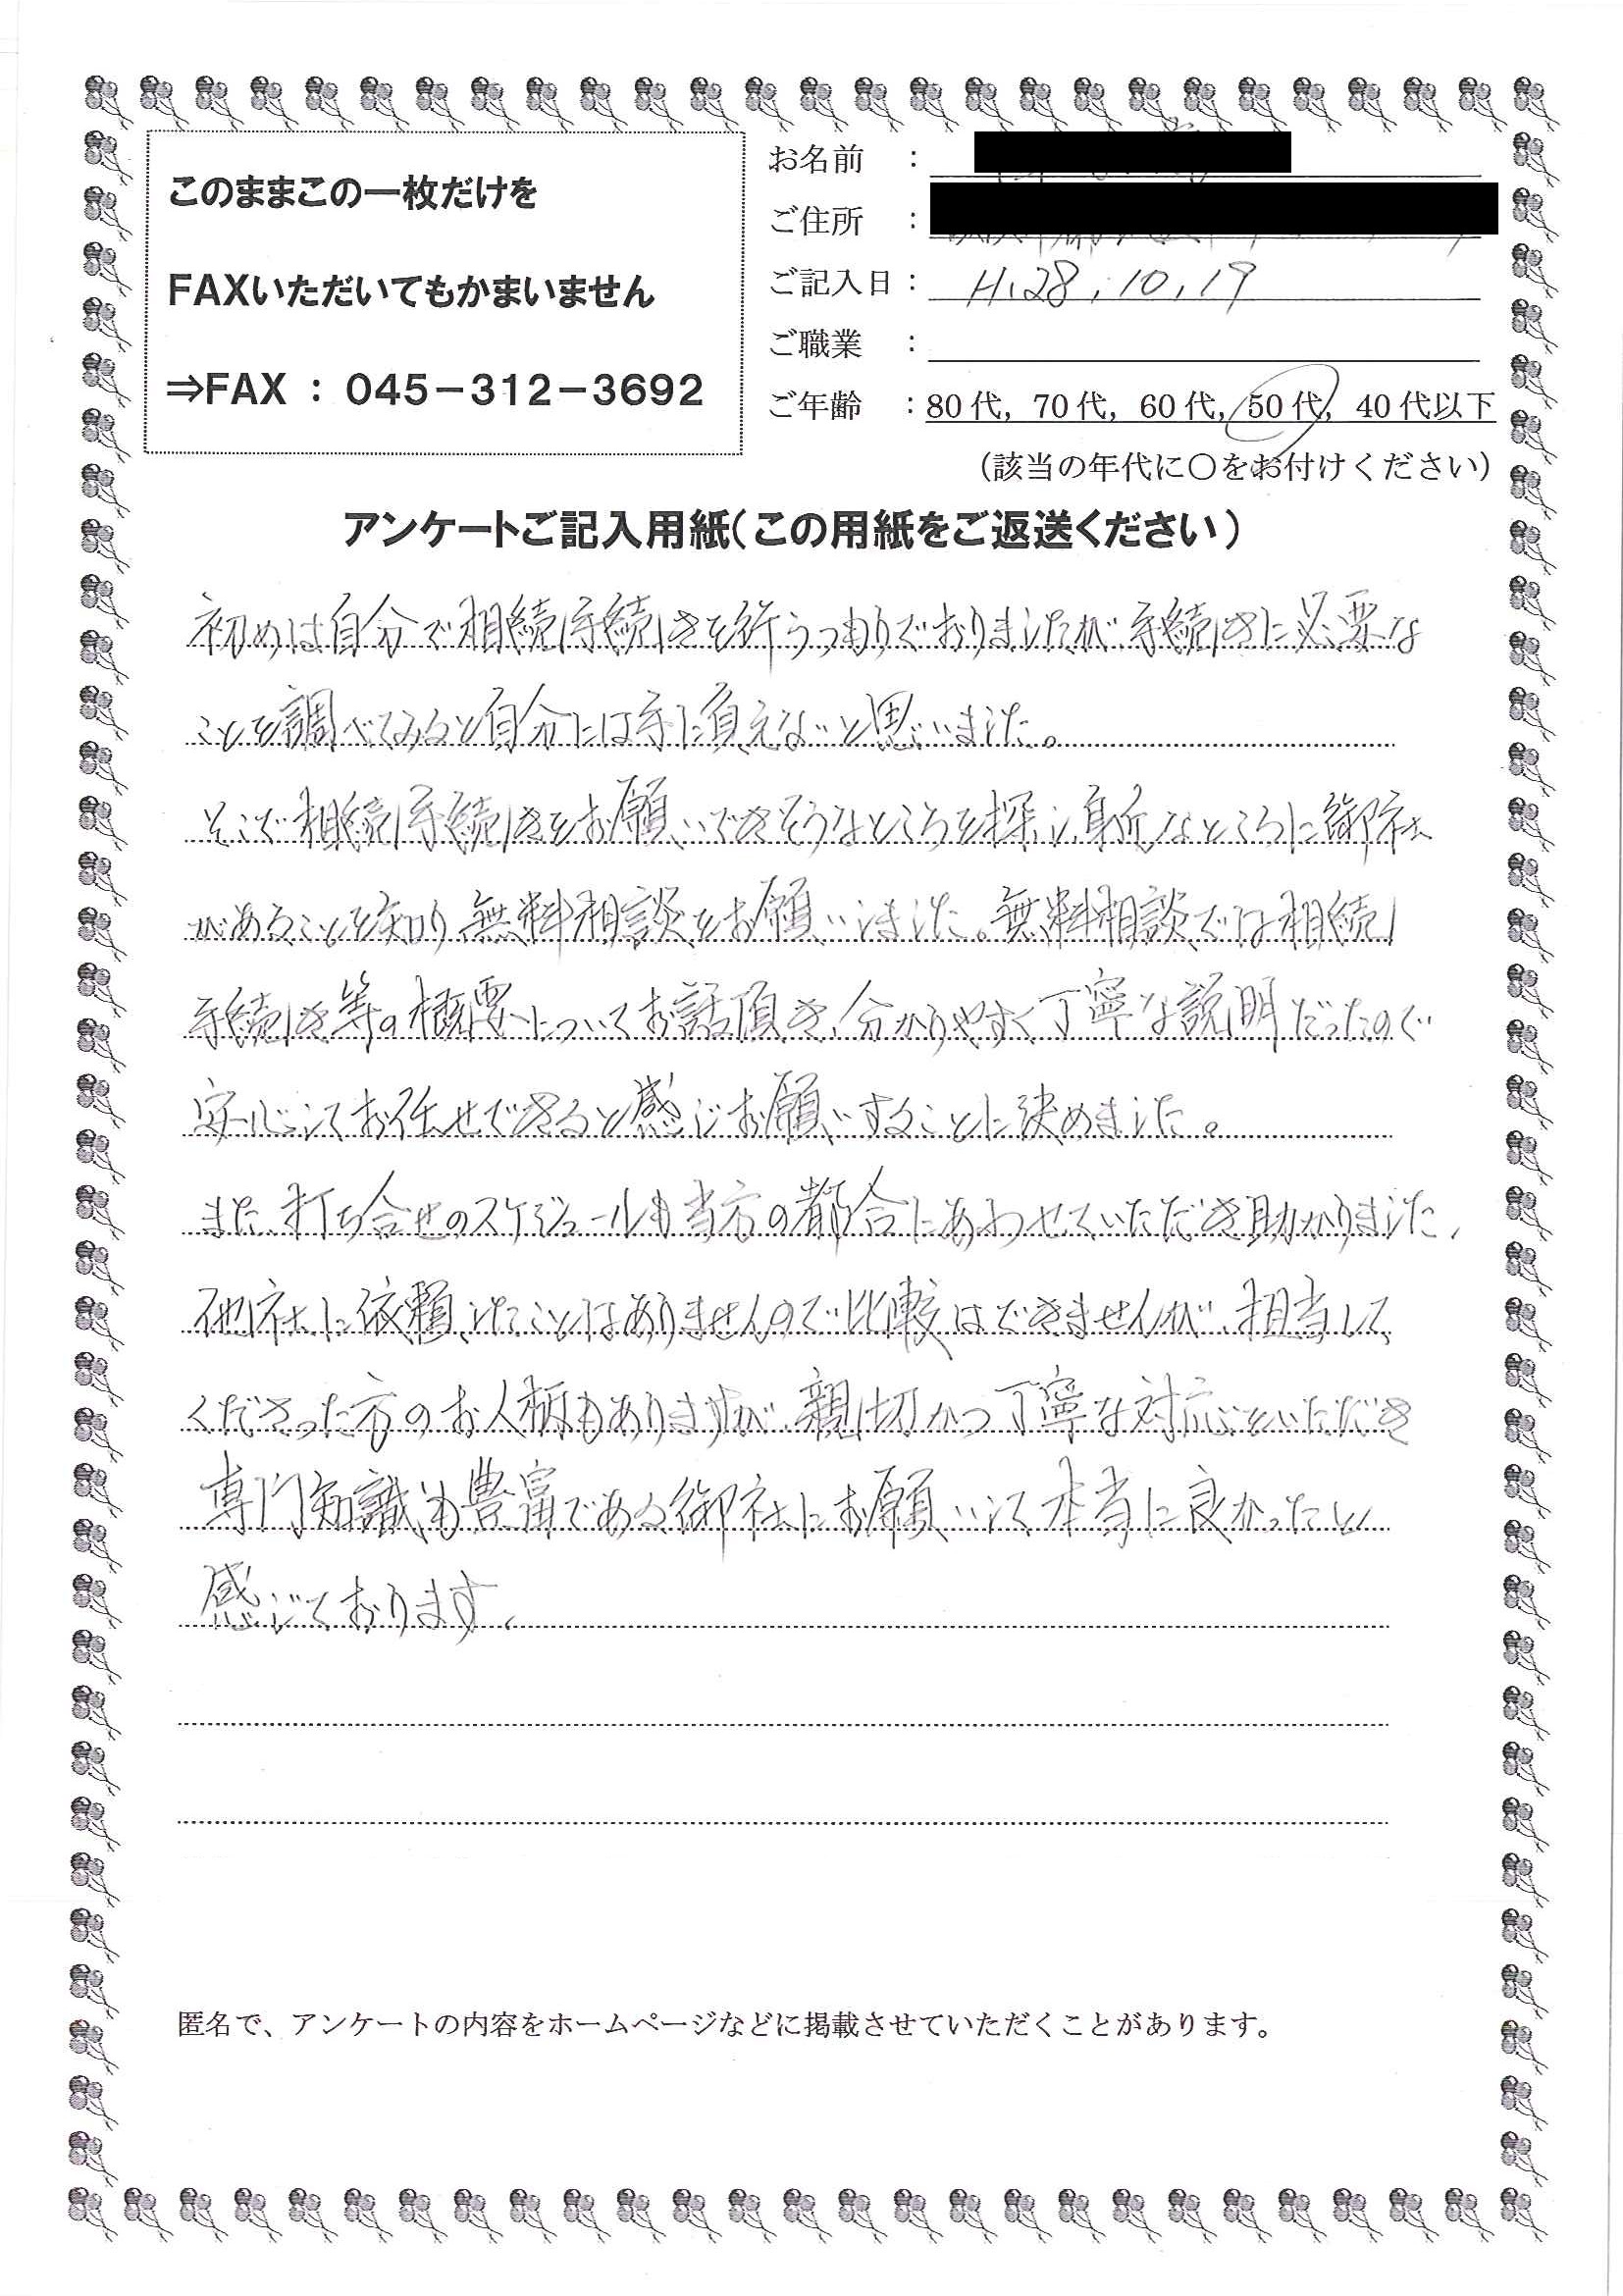 このままこの一枚だけを
FAXいただいてもかまいません
⇒FAX : 045-312-3692
お名前 :
ご住所 :
ご記入日 : H.28.10.19
ご職業 :
ご年齢 : 80代, 70代, 60代, 50代, 40代以下
(該当の年代に○をお付けください)
アンケートご記入用紙(この用紙をご返送ください)
初めは自分で相続手続きを行うつもりでおりましたが、手続きに必要な
ことを調べてみると自分には手に負えないと思いました。
そこで相続手続きをお願いできそうなところを探し、身近なところに御社
があることを知り、無料相談をお願いしました。無料相談では相続
手続き等の概要についてお話頂き、分かりやすく丁寧な説明だったので
安心してお任せできると感じお願いすることに決めました。
また、打ち合せのスケジュールも当方の都合にあわせていただき助かりました。
他社に依頼したことはありませんので比較はできませんが、担当して
くださった方のお人柄もありますが、親切かつ丁寧な対応をいただき
専門知識も豊富である御社にお願いして本当に良かったと
感じております。
匿名で、アンケートの内容をホームページなどに掲載させていただくことがあります。